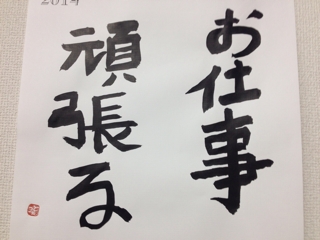 2014
お仕事
頑張る